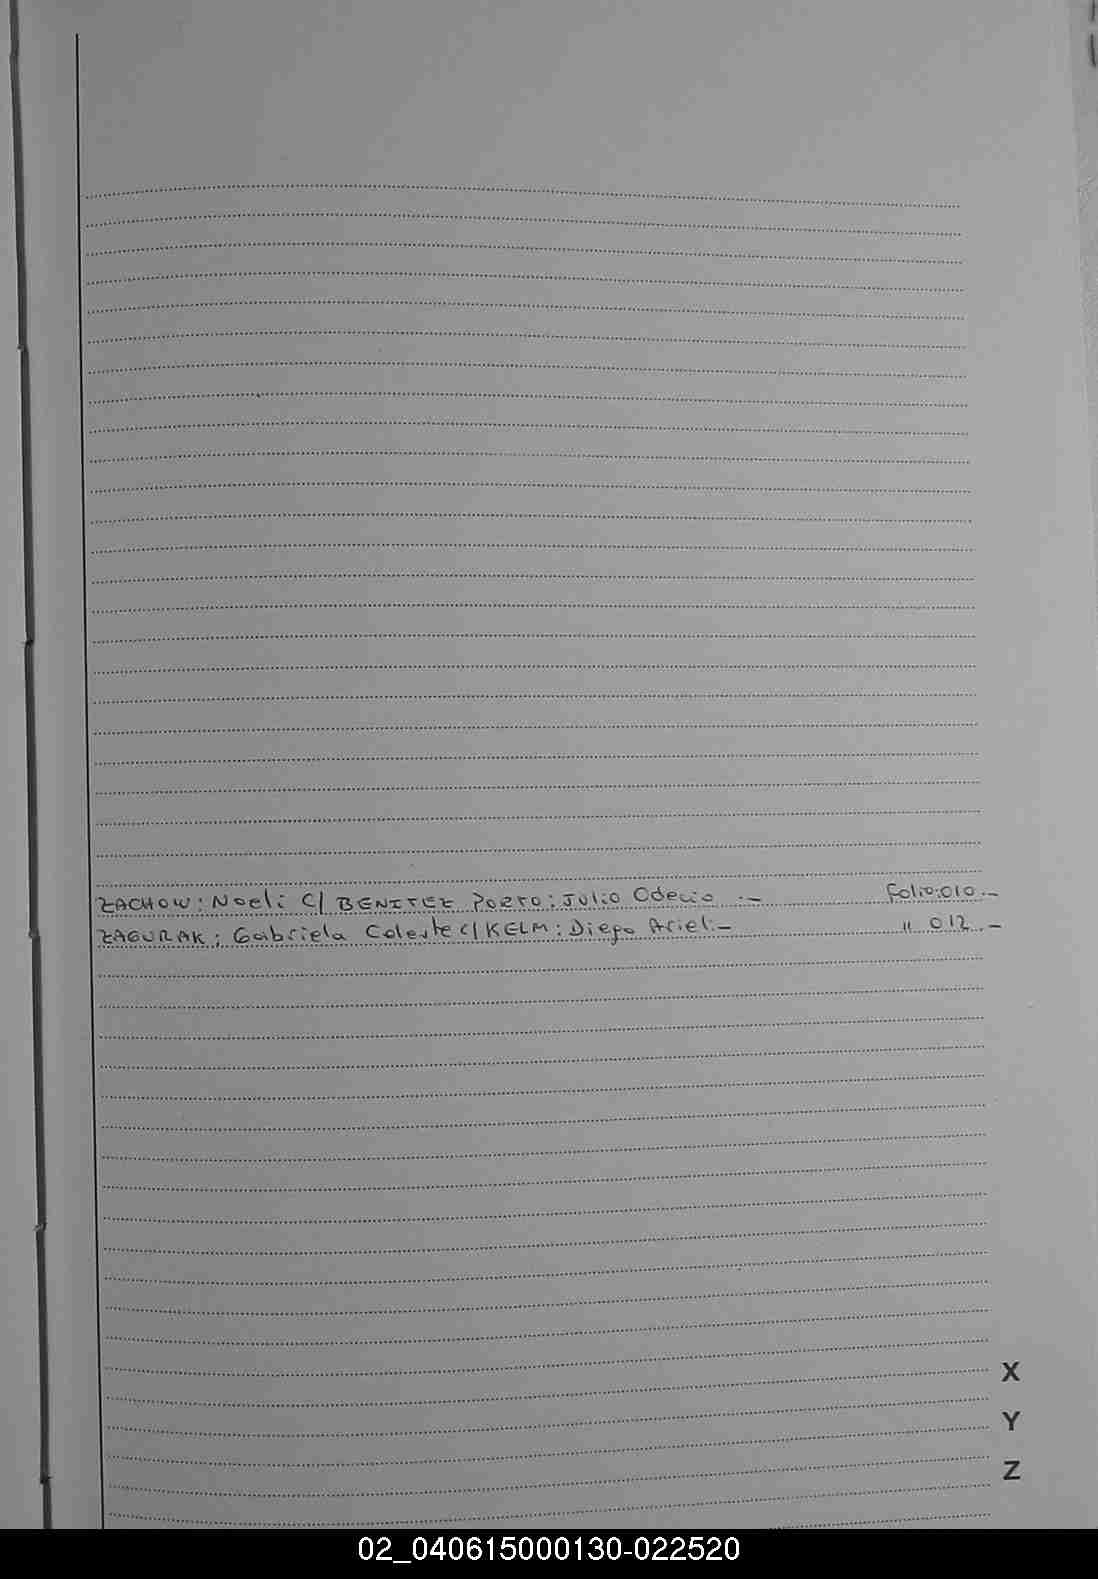 ZACHOW: Noeli C/ BENITEZ PORTO: Julio Odecio .-
Folio:010.-
ZAGURAK: Gabriela Celeste C/ KELM: Diego Ariel.-
" 012.-
X
Y
Z
02_040615000130-022520